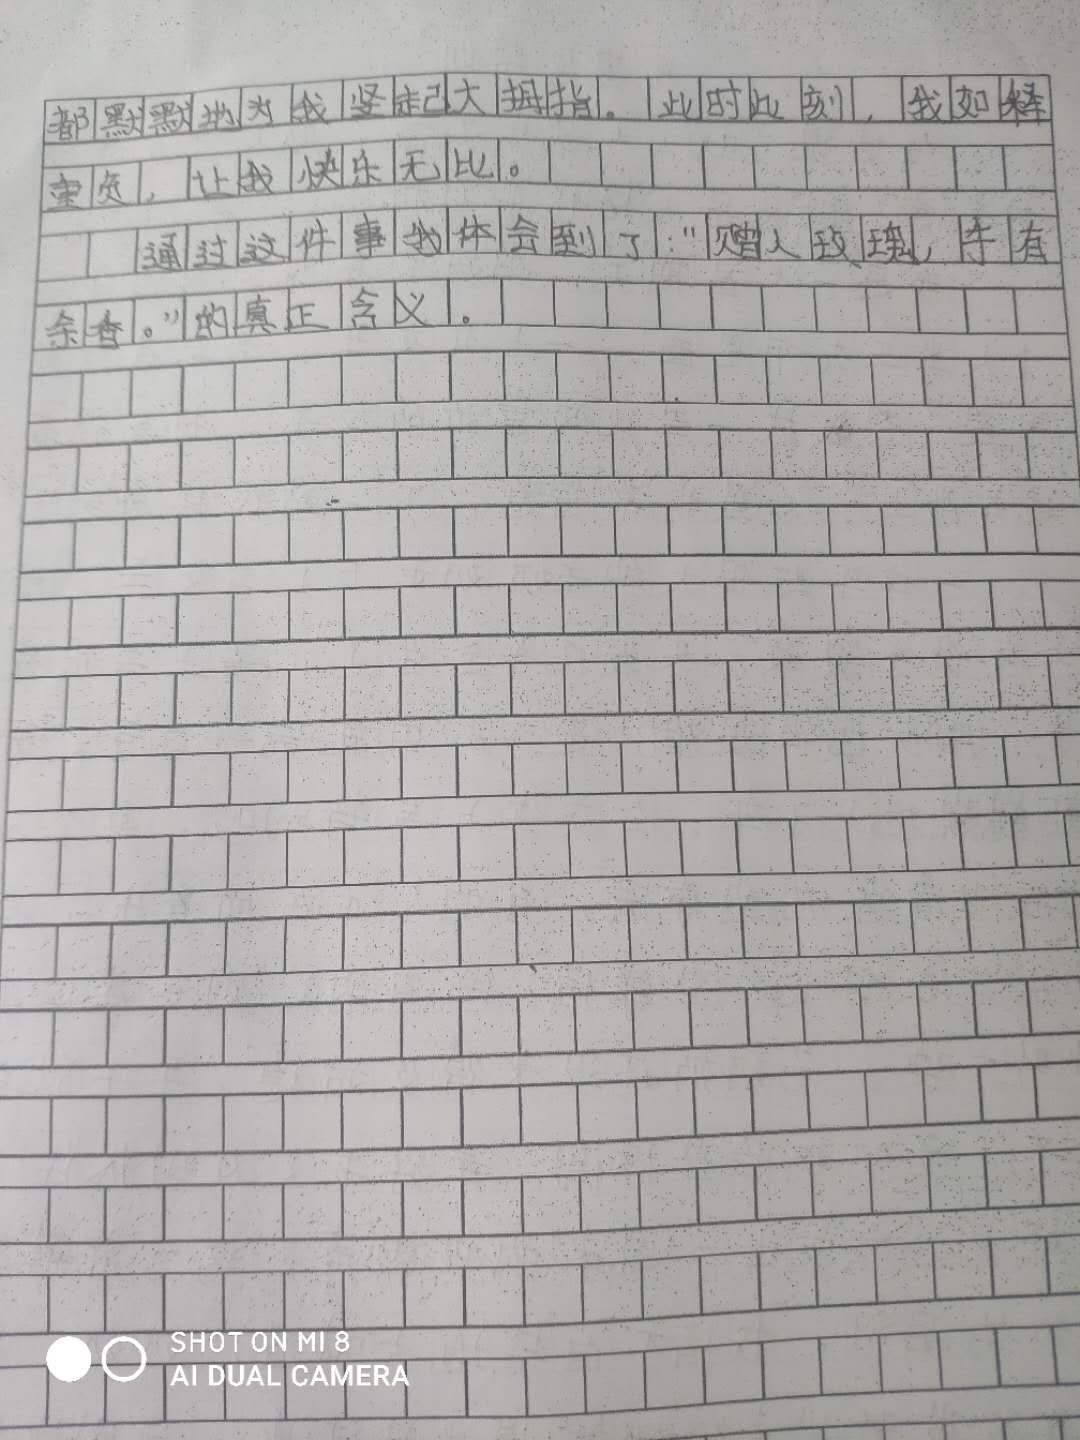 都默默地为我竖起大拇指。此时此刻，我如释
重负，让我快乐无比。
通过这件事我体会到了："赠人玫瑰，手有
余香。"的真正含义。
SHOT ON MI 8
AI DUAL CAMERA